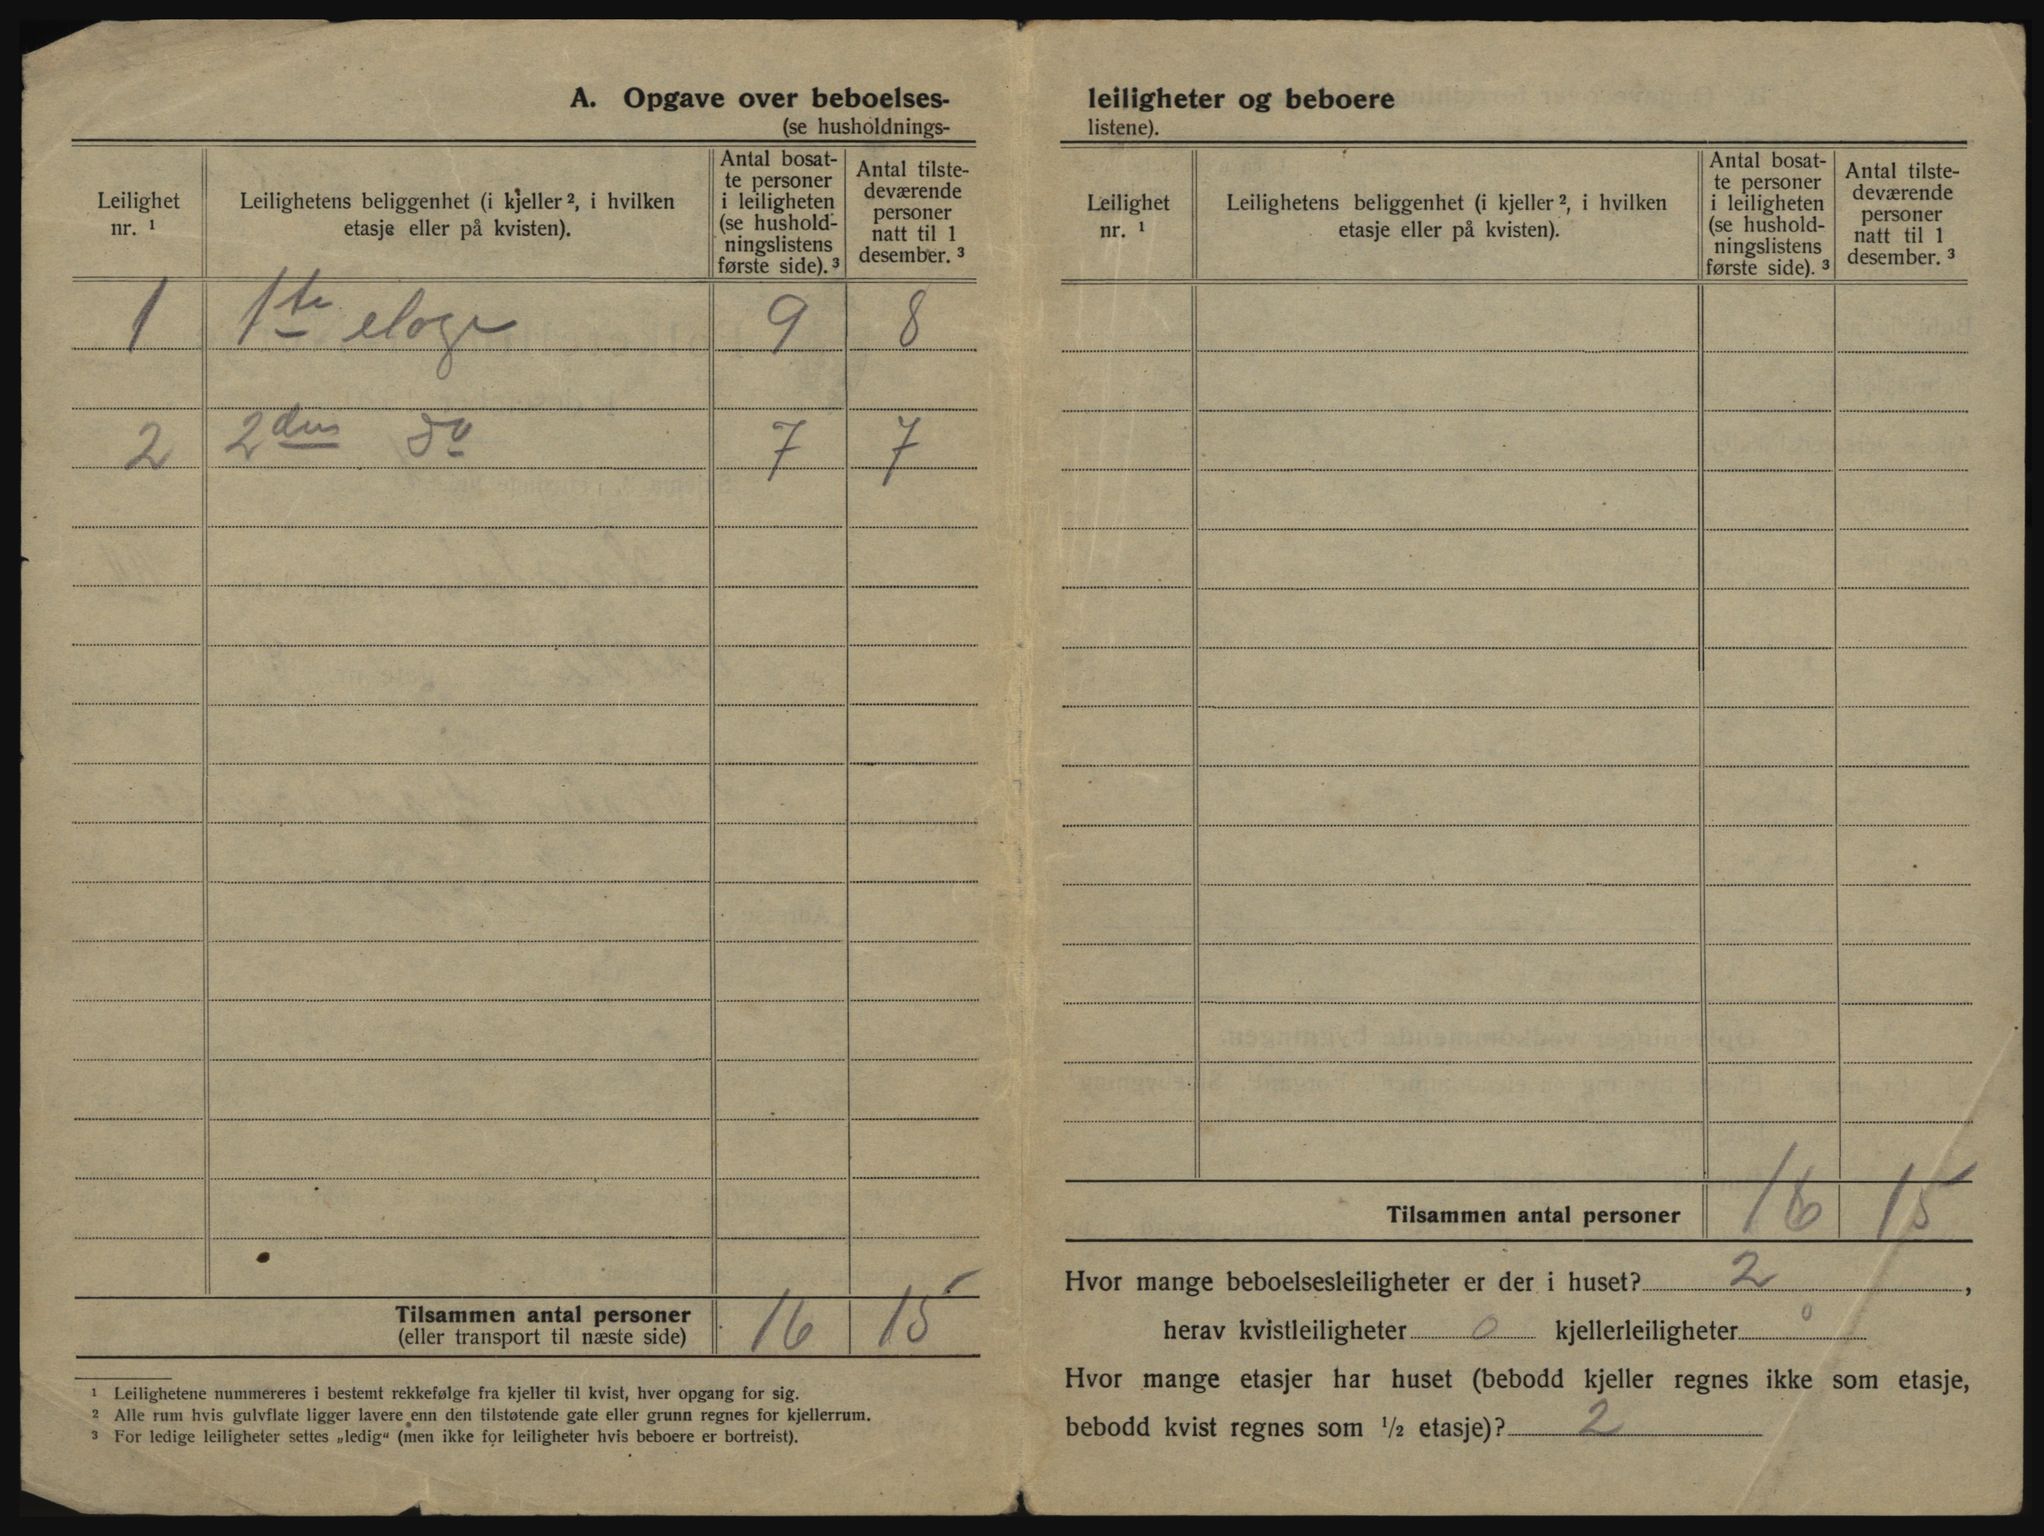 A. Opgave over beboelses-
(se husholdnings-
Leilighet
nr. ¹
Leilighetens beliggenhet (i kjeller ², i hvilken
etasje eller på kvisten).
Antal bosat-
te personer
i leiligheten
(se hushold-
ningslistens
første side). ³
Antal tilste-
deværende
personer
natt til 1
desember. ³
1 1ste 9 8
2 2den do 7 7
Tilsammen antal personer 16 15
(eller transport til næste side)
¹ Leilighetene nummereres i bestemt rekkefølge fra kjeller til kvist, hver opgang for sig.
² Alle rum hvis gulvflate ligger lavere enn den tilstøtende gate eller grunn regnes for kjellerrum.
³ For ledige leiligheter settes „ledig“ (men ikke for leiligheter hvis beboere er bortreist).
leiligheter og beboere
listene).
Leilighet
nr. ¹
Leilighetens beliggenhet (i kjeller ², i hvilken
etasje eller på kvisten).
Antal bosat-
te personer
i leiligheten
(se hushold-
ningslistens
første side). ³
Antal tilste-
deværende
personer
natt til 1
desember. ³
Tilsammen antal personer 16 15
Hvor mange beboelsesleiligheter er der i huset? 2 ,
herav kvistleiligheter 0 kjellerleiligheter 0
Hvor mange etasjer har huset (bebodd kjeller regnes ikke som etasje,
bebodd kvist regnes som ½ etasje)? 2